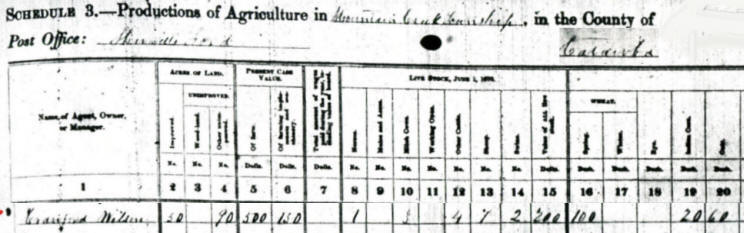 SCHEDULE 3.—Productions of Agriculture in Mountain Creek Township, in the County of
Post Office: Sherrills Ford Catawba
ACRES OF LAND. PRESENT CASH VALUE. LIVE STOCK, JUNE 1, 1870.
Name of Agent, Owner, or Manager. UNIMPROVED. WHEAT.
Improved. Woodland. Of farm. Horses. Mules and Asses. Milch Cows. Working Oxen. Other Cattle. Sheep. Swine. Value of all live stock. Spring. Winter. Rye. Indian Corn.
No. No. No. Dolls. Dolls. Dolls. No. No. No. No. No. No. No. Dolls. Bush. Bush. Bush. Bush. Bush.
1 2 3 4 5 6 7 8 9 10 11 12 13 14 15 16 17 18 19 20
Wilson 50 90 500 150 1 3 4 7 2 200 100 20 60